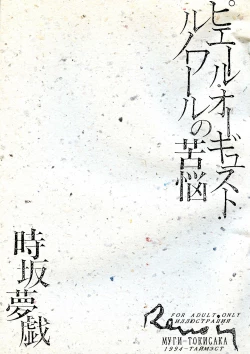 ピエール・オーギュスト・
ルノワールの苦悩
時坂夢戯
Renoir
FOR ADULT ONLY
ИЛЛЮСТРАЦИЯ
МУГИ-ТОКИСАКА
1994-ТАЙМЭСТ